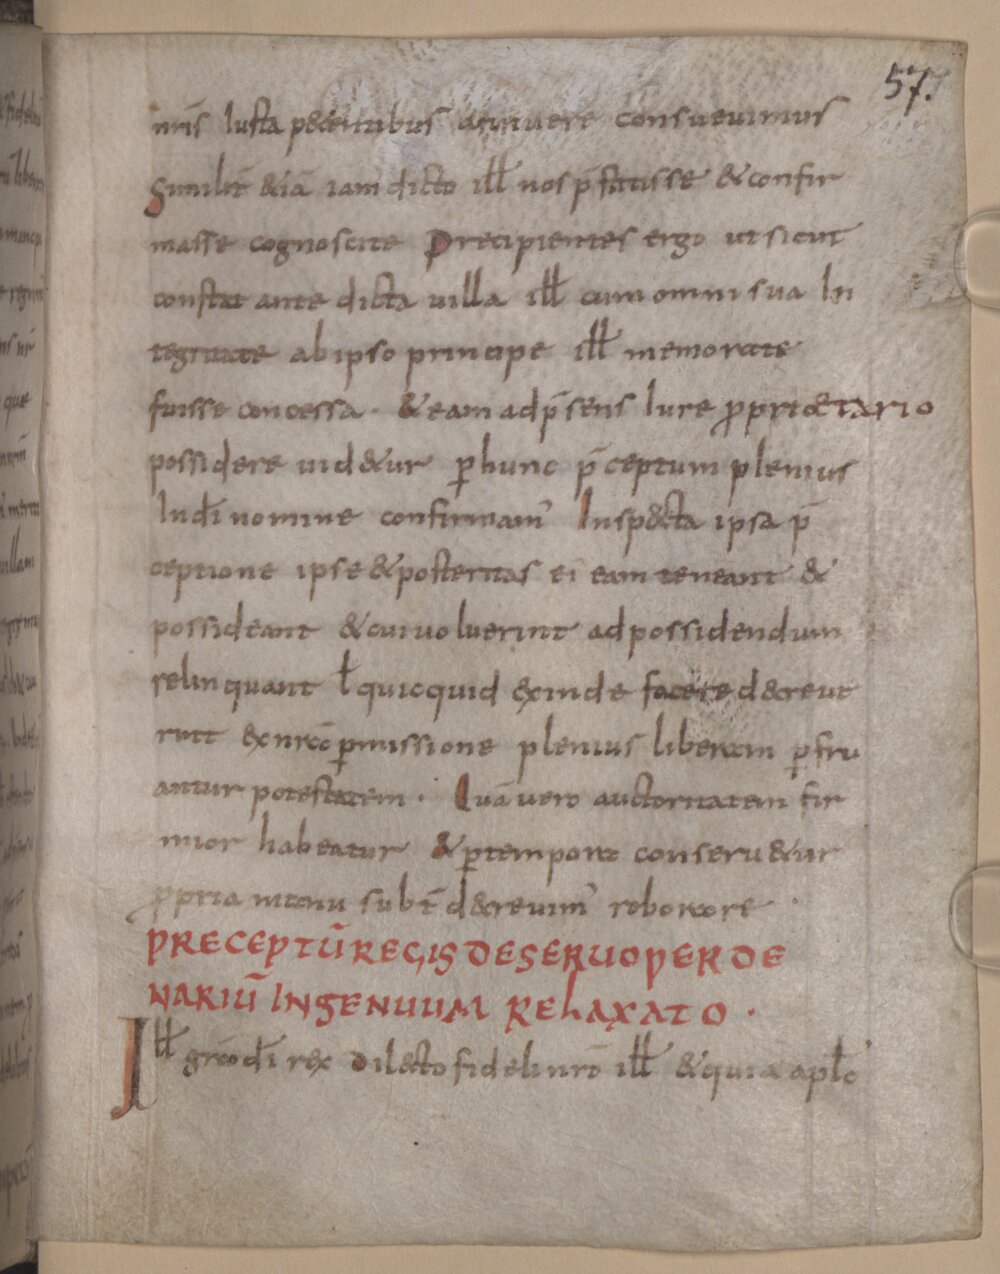 57.
nr̄is Iusta p&entibus adnuere consueuimus
Similit̄ &iā iamdicto ill̄ nos p̄stitisse &confir
masse cognoscite Precipientes ergo ut sicut
constat ante dicta uilla ill̄ cum omni sua In
tegritate ab ipso principe ill̄ memorate
fuisse concessa · &eam ad p̄sens Iure ꝓpri&tario
possidere uid&ur ꝑ hunc p̄ceptum plenius
In dī nomine confirmam' Insp&cta ipsa p̄
ceptione ipse &posteritas ei eam teneant &
possideant &cui uoluerint ad possidendum
relinquant ł quicquid exinde facere d&creue
rint ex nr̄o ꝑmissione plenius liberam ꝑfru
antur potestatem · Quā uero auctoritatem fir
mior habeatur & ꝑ tempora conseru&ur
ꝓpria manu subt̄ d&creuim' roborare ·
PRECEPTŪ REGIS DE SERUO PER DE
NARIŪ INGENUUM RELAXATO ·
Ill̄ gr̄a dī rex Dilecto fideli nr̄o ill̄ &quia aptl̄c